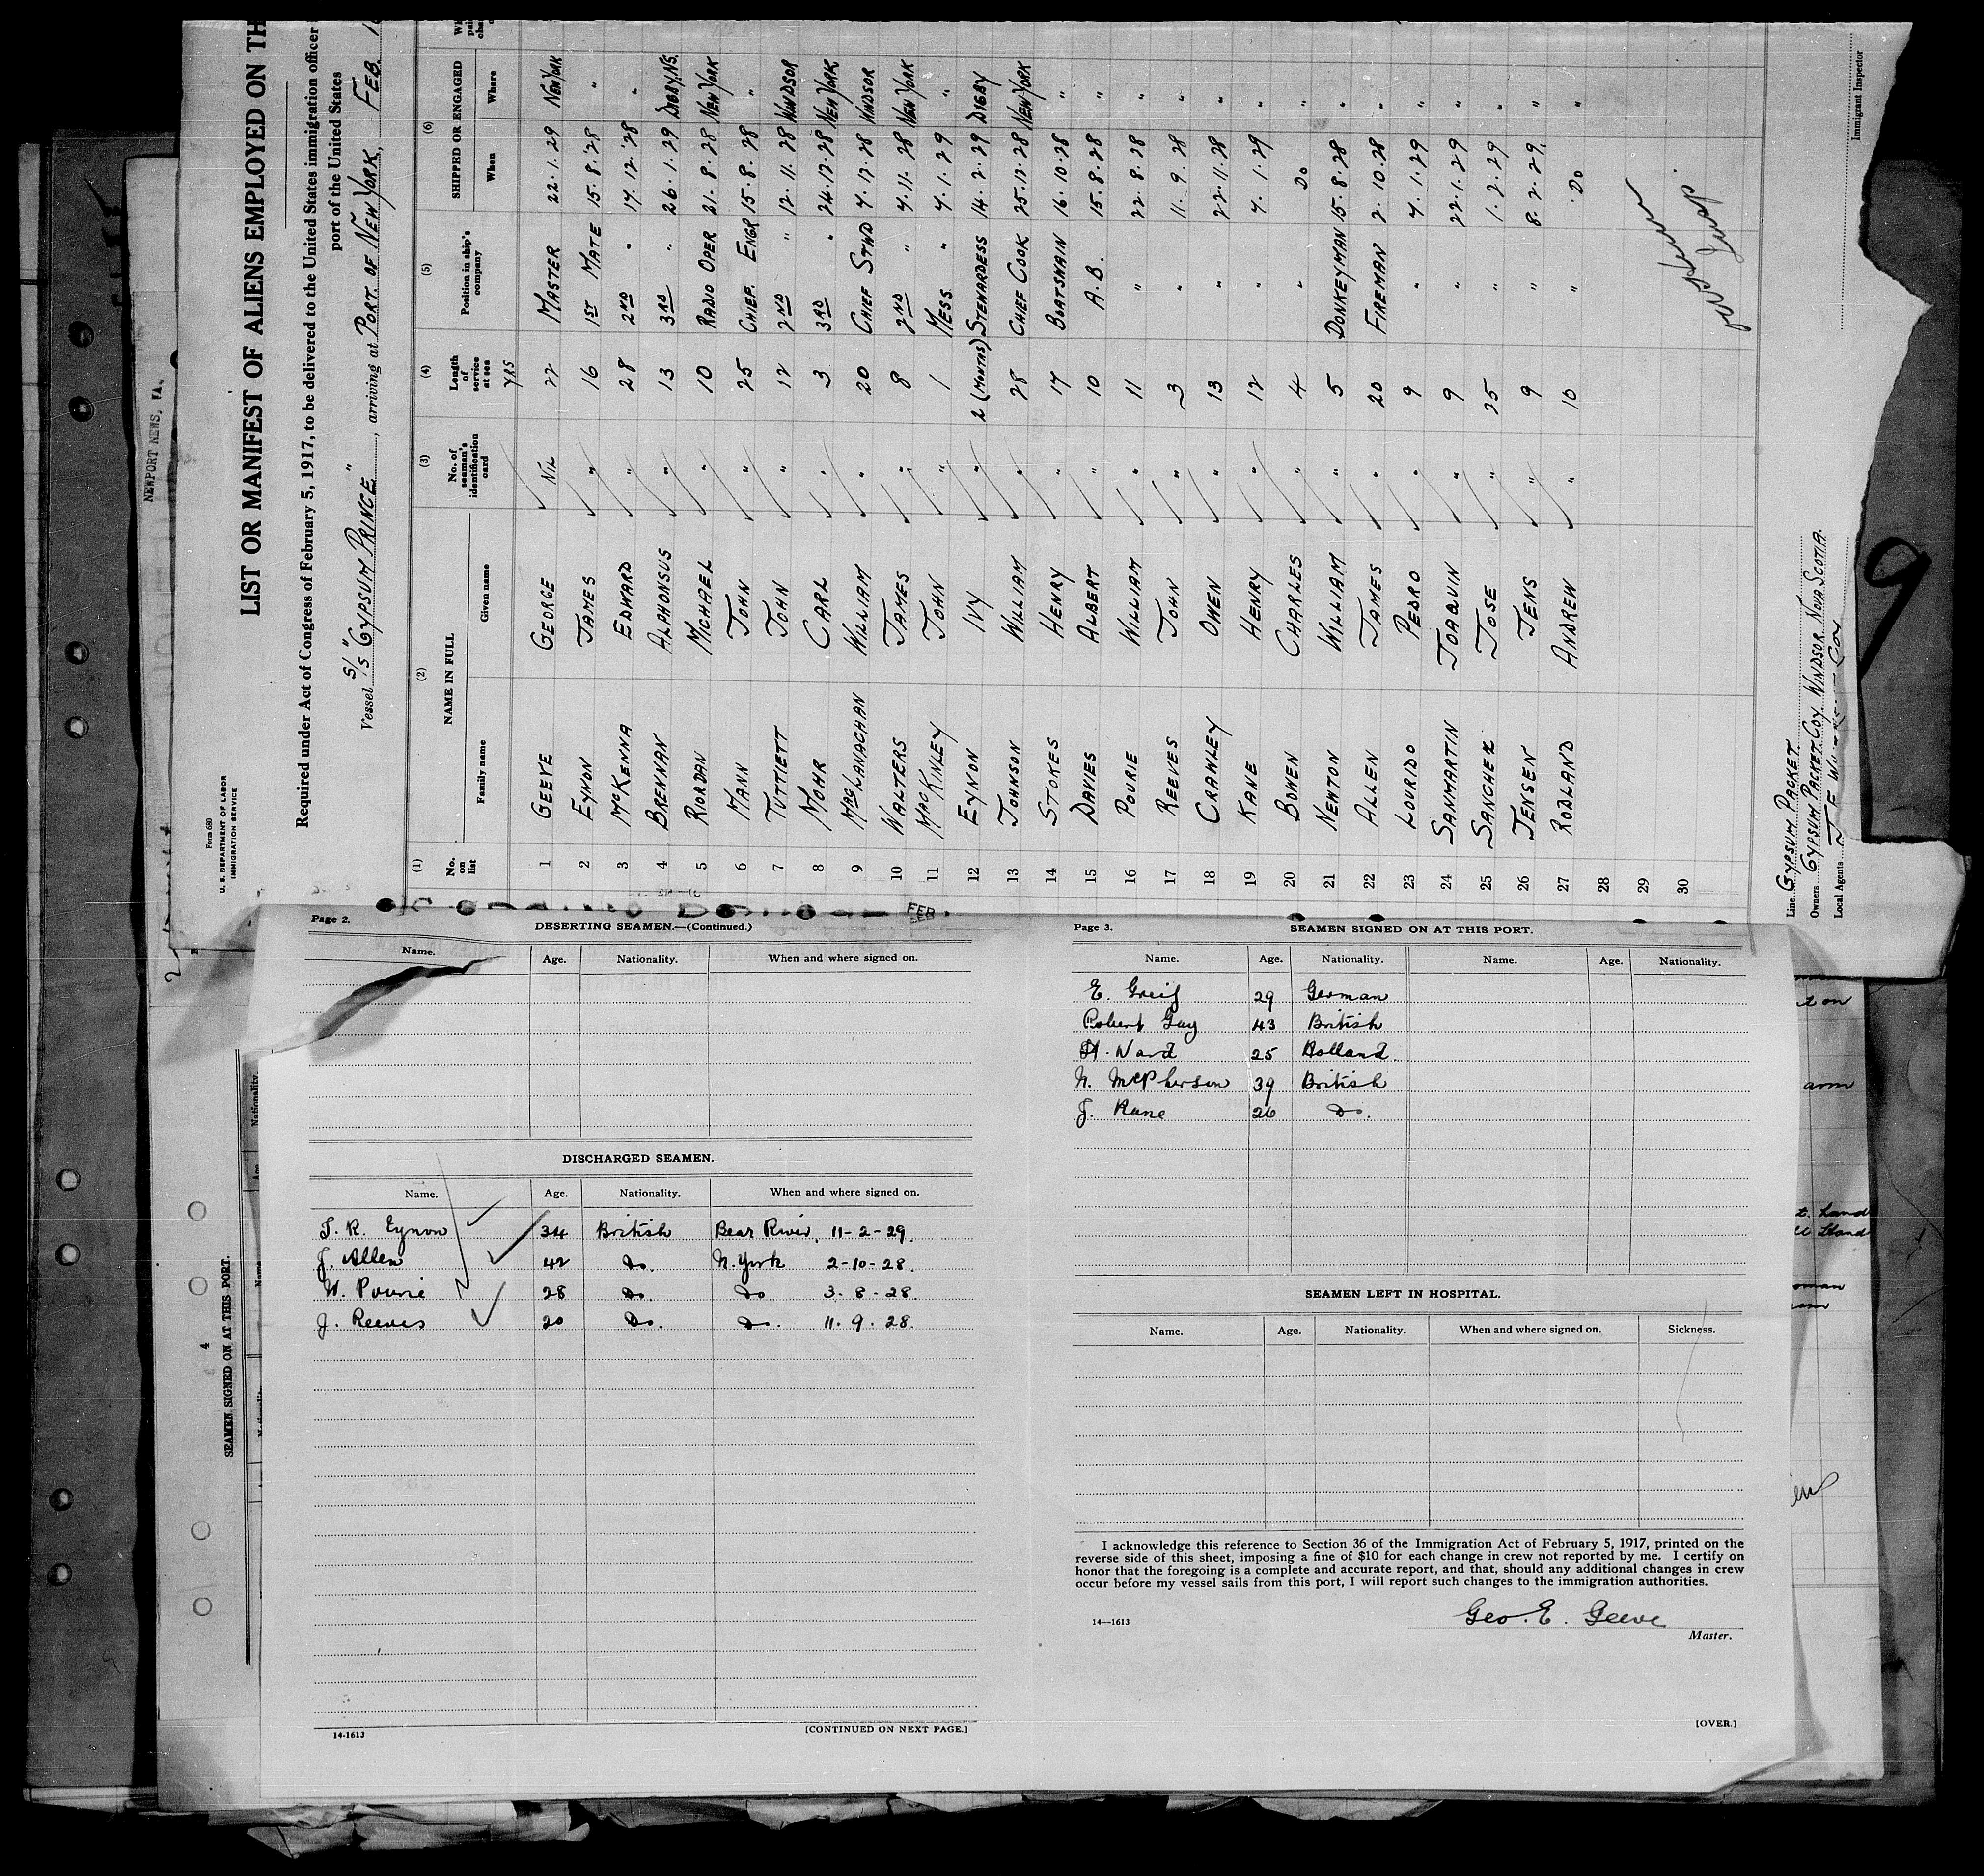 Form 680
U. S. DEPARTMENT OF LABOR
IMMIGRATION SERVICE
LIST OR MANIFEST OF ALIENS EMPLOYED ON TH
Required under Act of Congress of February 5, 1917, to be delivered to the United States immigration officer
port of the United States
Vessel S/S "GYPSUM PRINCE", arriving at PORT OF NEW YORK, FEB. 1
(1) (2) (3) (4) (5) (6)
No. on list NAME IN FULL Family name Given name No. of seaman's identification card Length of service at sea Position in ship's company SHIPPED OR ENGAGED When Where
YRS
1 GEEVE GEORGE NIL 22 MASTER 22.1.29 NEW YORK
2 EYNON JAMES " 16 1ST MATE 15.8.'28 "
3 McKENNA EDWARD " 28 2ND " 17.12.'28 "
4 BRENNAN ALPHONSUS " 13 3RD " 26.1.29 DIGBY, N.S.
5 RIORDAN MICHAEL " 10 RADIO OPER 21.8.28 NEW YORK
6 MANN JOHN " 25 CHIEF ENGR 15.8.28 "
7 TUTTIETT JOHN " 12 2ND " 12.11.28 WINDSOR
8 MOHR CARL " 3 3RD " 24.12.28 NEW YORK
9 MACLANACHAN WILLIAM " 20 CHIEF STWD 4.12.28 WINDSOR
10 WALTERS JAMES " 8 2ND " 7.11.28 NEW YORK
11 MACKINLEY JOHN " 1 MESS " 4.1.29 "
12 EYNON IVY " 2 (MONTHS) STEWARDESS 14.2.29 DIGBY
13 JOHNSON WILLIAM " 28 CHIEF COOK 25.12.28 NEW YORK
14 STOKES HENRY " 17 BOATSWAIN 16.10.28 "
15 DAVIES ALBERT " 10 A.B. 15.8.28 "
16 POURIE WILLIAM " 11 " 22.8.28 "
17 REEVES JOHN " 3 " 11.9.28 "
18 CRAWLEY OWEN " 13 " 22.11.28 "
19 KANE HENRY " 12 " 4.1.29 "
20 BOWEN CHARLES " 4 " DO "
21 NEWTON WILLIAM " 5 DONKEYMAN 15.8.28 "
22 ALLEN JAMES " 20 FIREMAN 2.10.28 "
23 LOURIDO PEDRO " 9 " 4.1.29 "
24 SANMARTIN JOAQUIN " 9 " 22.1.29 "
25 SANCHEZ JOSE " 25 " 1.2.29 "
26 JENSEN JENS " 9 " 8.2.29. "
27 RODLAND ANDREW " 10 " DO "
28
29
30
Line GYPSUM PACKET
Owners GYPSUM PACKET COY. WINDSOR. NOVA SCOTIA.
Local Agents
Immigrant Inspector
NEWPORT NEWS, VA.
9
FEB.
Page 2.
DESERTING SEAMEN.—(Continued.)
Name. Age. Nationality. When and where signed on.
DISCHARGED SEAMEN.
Name. Age. Nationality. When and where signed on.
J. R. Eynon 34 British Bear River, 11-2-29.
J. Allen 42 Do. N. York 2-10-28.
W. Pourie 28 Do. Do 3-8-28.
J. Reeves 20 Do. Do. 11.9.28.
14-1613
[CONTINUED ON NEXT PAGE.]
Page 3.
SEAMEN SIGNED ON AT THIS PORT.
Name. Age. Nationality. Name. Age. Nationality.
E. Greif 29 German
Robert Guy 43 British
H. Ward 25 Holland.
N. McPherson 39 British
J. Kane 26 Do.
SEAMEN LEFT IN HOSPITAL.
Name. Age. Nationality. When and where signed on. Sickness.
I acknowledge this reference to Section 36 of the Immigration Act of February 5, 1917, printed on the
reverse side of this sheet, imposing a fine of $10 for each change in crew not reported by me. I certify on
honor that the foregoing is a complete and accurate report, and that, should any additional changes in crew
occur before my vessel sails from this port, I will report such changes to the immigration authorities.
14—1613
Geo. E. Geeve
Master.
[OVER.]
4
SEAMEN SIGNED ON AT THIS PORT.
Name Age Nationality